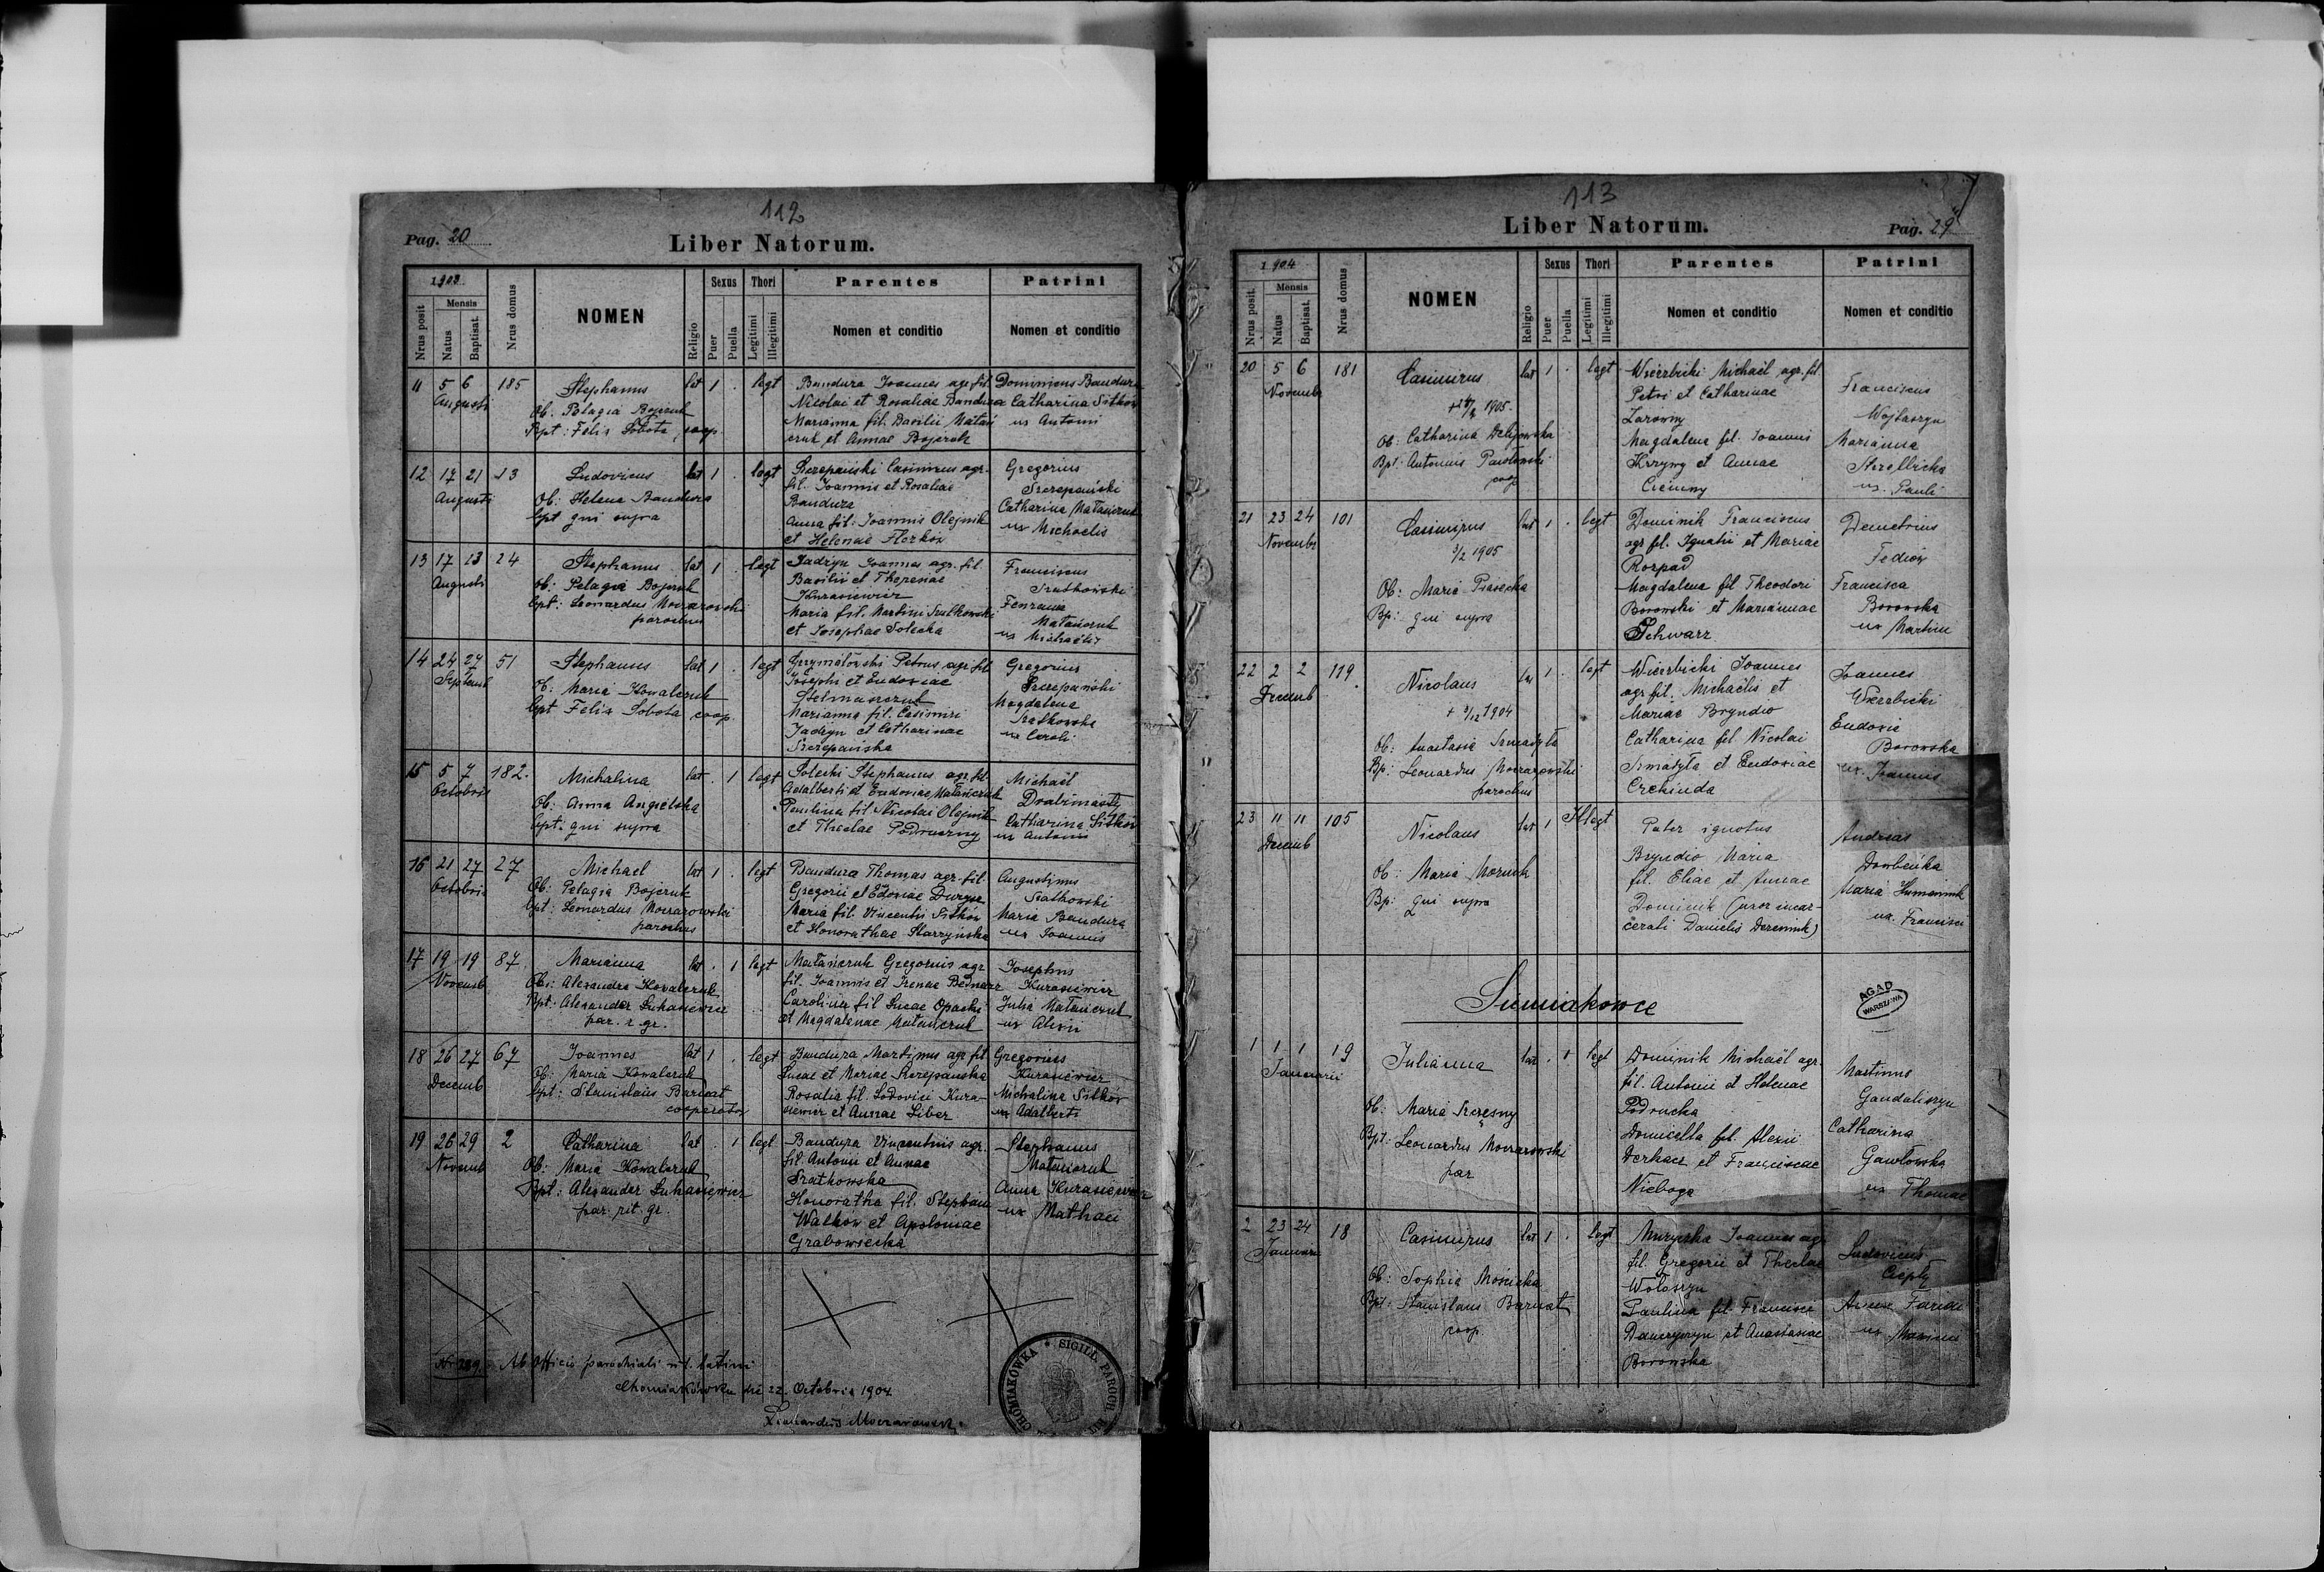 112
Pag. 20
Liber Natorum.
1903
Nrus posit
Mensis
Natus
Baptisat.
Nrus domus
NOMEN
Religio
Sexus
Puer
Puella
Thori
Legitimi
Illegitimi
Parentes
Nomen et conditio
Patrini
Nomen et conditio
11 5 6 185 Stephanus lat 1 . legt Bandura Joannes agr. fil. Dominicus Bandura
Augusti Nicolai et Rosaliae Bandura Catharina Sitkow
Ob. Pelagia Bojczuk Marianna fil. Basilii Matań ux Antoni
Bpt: Felix Sobota, coop. czuk et Annae Bojczuk
12 17 21 13 Ludovicus lat 1 . legt Szczepański Casimirus agr. Gregorius
Augusti fil. Joannis et Rosaliae Szczepański
Ob: Helena Bandura Bandura Catharina Matańczuk
bpt qui supra Anna fil. Joannis Olejnik ux Michaelis
et Helenae
13 17 23 24 Stephanus lat 1 . legt Jadczyn Joannes agr. fil. Franciscus
Augusti Basilii et Sratkowski
Ob: Pelagia Bojczuk Kurasiewicz
bpt: Leonardus Moczarowski Maria fil. Martini Matańczuk
parochus et Josephae Solecka ux Michaelis
14 24 27 51 Stephanus lat 1 . legt Grzymałowski Petrus agr. fil. Gregorius
Septemb Josephi et Eudoxiae Szczepański
Ob: Maria Kowalczuk Stelmaszczuk Magdalena
bpt Felix Sobota coop. Marianna fil. Casimiri Sratkowska
Jadczyn et Catharinae ux Caroli
Szczepańska
15 5 7 182. Michalina lat . 1 legt Solecki Stephanus agr. fil. Michaël
Octobris Adalberti et Eudoxiae Matańczuk
Ob: Anna Angielska Paulina fil. Nicolai Olejnik Catharina Sitków
bpt. qui supra et Theclae Podruczny ux Antonii
16 21 27 27 Michael lat 1 . legt Bandura Thomas agr. fil. Augustinus
Octobris Gregorii et Edoxiae Sratkowski
Ob: Pelagia Bojczuk Maria fil. Vincentii Sitków Maria Bandura
bpt: Leonardus Moczarowski et Honorathae Starzyńska ux Joannis
parochus
17 19 19 87 Marianna lat . 1 legt Matańczuk Gregorius agr Josephus
Novemb fil. Joannis et Irenae Bednarz Kurasiewicz
Ob: Alexandra Kowalczuk Carolina fil Lucae Opacki Julia Matańczuk
Bpt: Alexander Łukasiewicz et Magdalenae Matańczuk ux Alexii
par. r. gr.
18 26 27 67 Joannes lat 1 . legt Bandura Martinus agr fil Gregorius
Decemb Lucae et Mariae Szczepańska Kurasiewicz
Ob: Maria Kowalczuk Rosalia fil. Ludovici Kura- Michalina Sitków
bpt: Stanislaus Barnat siewicz et Annae Liber ux Adalberti
cooperator
19 26 29 2 Catharina lat . 1 legt Bandura Vincentius agr. Stephanus
Novemb fil. Antonii et Annae Matańczuk
Ob: Maria Kowalczuk Sratkowska Anna Kurasiewicz
Bpt: Alexander Łukasiewicz Honoratha fil. Stephani ux Mathaei
par. rit. gr. Walków et Apoloniae
Grabowiecka
Nr 289. Ab Officio parochiali rit. latini
Chomiakówka die 22. Octobris 1904
Leonardus Moczarowski
SIGILL. PAROCH. RIT. CHOMIAKOWKA
113
Liber Natorum.
Pag. 29
1904
Nrus posit.
Mensis
Natus
Baptisat.
Nrus domus
NOMEN
Religio
Sexus
Puer
Puella
Thori
Legitimi
Illegitimi
Parentes
Nomen et conditio
Patrini
Nomen et conditio
20 5 6 181 Casimirus lat 1 . legt Wierzbicki Michaël agr. fil. Franciscus
Novemb 1905. Petri et Catharinae Wojtaszyn
Żarowny Marianna
Ob: Catharina Magdalena fil. Joannis Strzelbicka
Bpt: Antonius Pawłowski Krzywy et Annae ux. Pauli
coop Ciemny
21 23 24 101 Casimirus lat 1 . legt Dominik Franciscus Demetrius
Novembr 3/2 1905 agr fil. Ignatii et Mariae Fediów
Rozpad Francisca
Ob: Maria Piasecka Magdalena fil Theodori Borowska
Bp: qui supra Borowski et Mariannae ux Martini
Schwarz
22 2 2 119 Nicolaus lat 1 . legt Wierzbicki Joannes Joannes
Decemb + 3/12 1904 agr fil. Michaëlis et Wierzbicki
Mariae Bryndio Eudoxia
Ob: Anastasia Szmadyła Catharina fil Nicolai Borowska
Bp: Leonardus Moczarowski Szmadyła et Eudoxiae ux. Joannis
parochus Czekinda
23 11 11 105 Nicolaus lat 1 Illegt Pater ignotus Andreas
Decemb Bryndio Maria
Ob: Maria fil. Eliae et Annae Maria Humeniuk
Bp: qui supra Dominik (uxor incar- ux. Francisci
cerati Danielis Dereniuk)
Siemiakowce
AGAD
WARSZAWA
1 1 1 19 Julianna lat . 1 legt Dominik Michaël agr. Martinus
Januarii fil. Antonii et Helenae Gandaliszyn
Ob: Maria Szczesny Podrucka Catharina
Bpt: Leonardus Moczarowski Domicella fil. Alexii Gawłowska
par Derkacz et Franciscae ux Thomae
Nieboga
2 23 24 18 Casimirus lat 1 . legt Muryska Joannes agr Ludovicus
Januar fil. Gregorii et Theclae Ciepły
Ob: Sophia Mościcka Wołoszyn
Bpt: Stanislaus Barnat Paulina fil. Francisci
coop et Anastasiae
Borowska